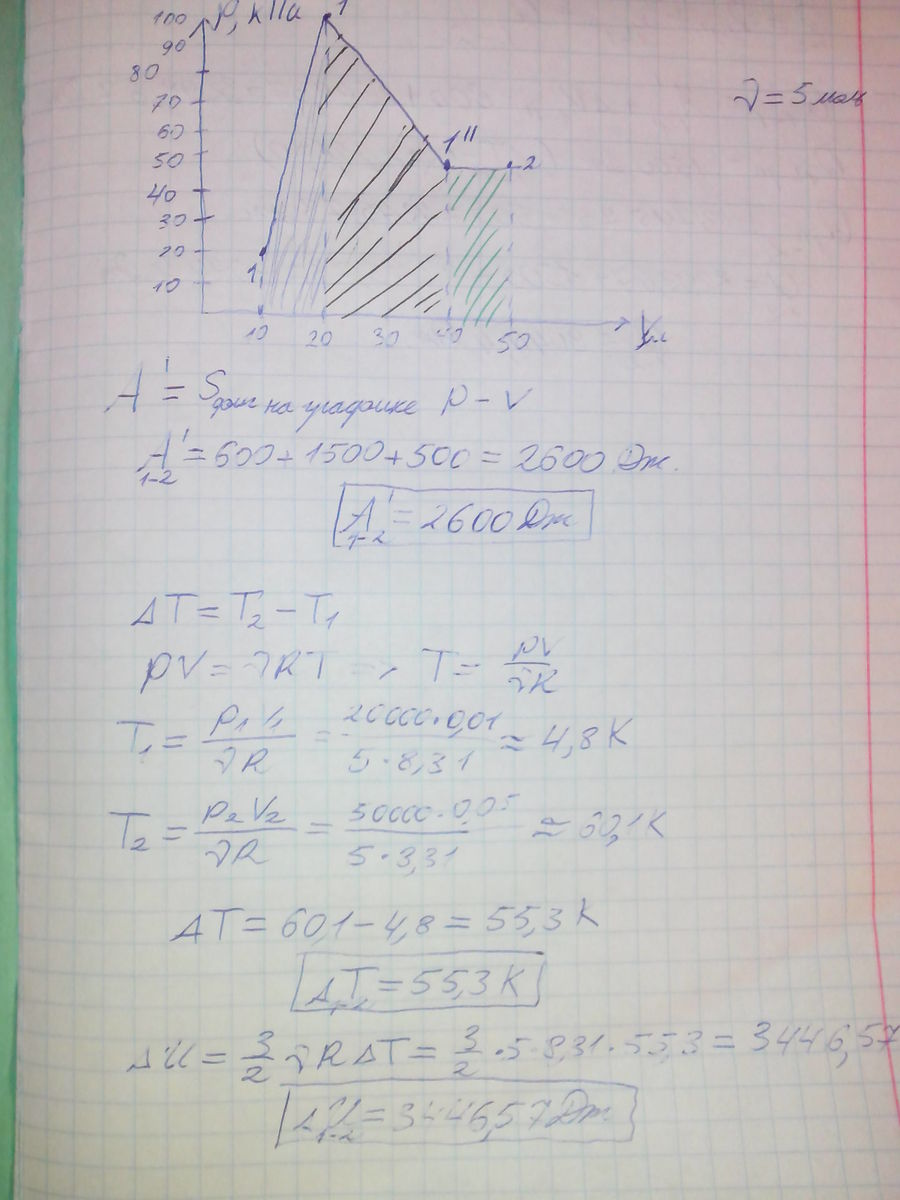 P, кПа
100
90
80
70
60
50
40
30
20
10
1'
1''
2
1
10 20 30 40 50
V, л
ν = 5 моль
A' = Sфиг на графике p - V
A'1-2 = 600 + 1500 + 500 = 2600 Дж.
A'1-2 = 2600 Дж
ΔT = T2 - T1
pV = νRT => T = pV/νR
T1 = p1V1/νR = 20000·0,01/5·8,31 ≈ 4,8 K
T2 = p2V2/νR = 50000·0,05/5·8,31 ≈ 60,1 K
ΔT = 60,1 - 4,8 = 55,3 K
ΔT1-2 = 55,3 K
ΔU = 3/2 νRΔT = 3/2 · 5 · 8,31 · 55,3 = 3446,57
ΔU1-2 = 3446,57 Дж